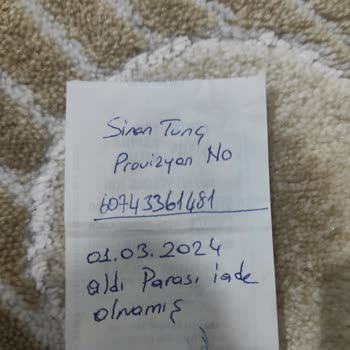 Sinan Tunç
Provizyon No
60743361481
01.03.2024
aldı Parası iade
olnamış